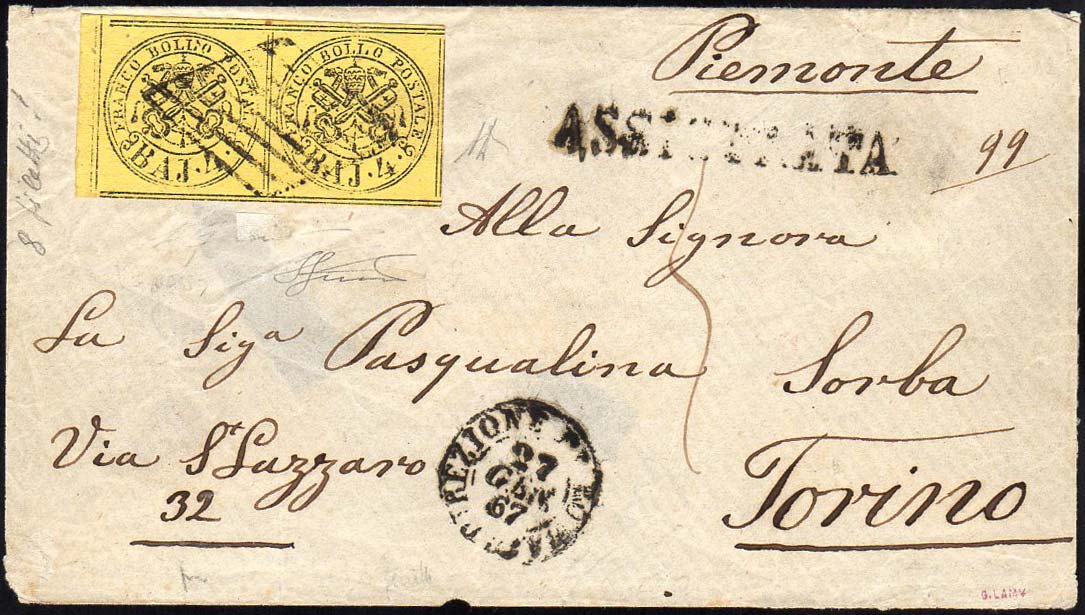 FRANCO BOLLO POSTALE
BAJ. 4.
FRANCO BOLLO POSTALE
BAJ. 4.
Piemonte
ASSICURATA
99
Alla Signora
La Sigª Pasqualina Sorba
Via S.t Lazzaro
32
Torino
DIREZIONE DI ROMA
27
GEN
67
G. LAMY